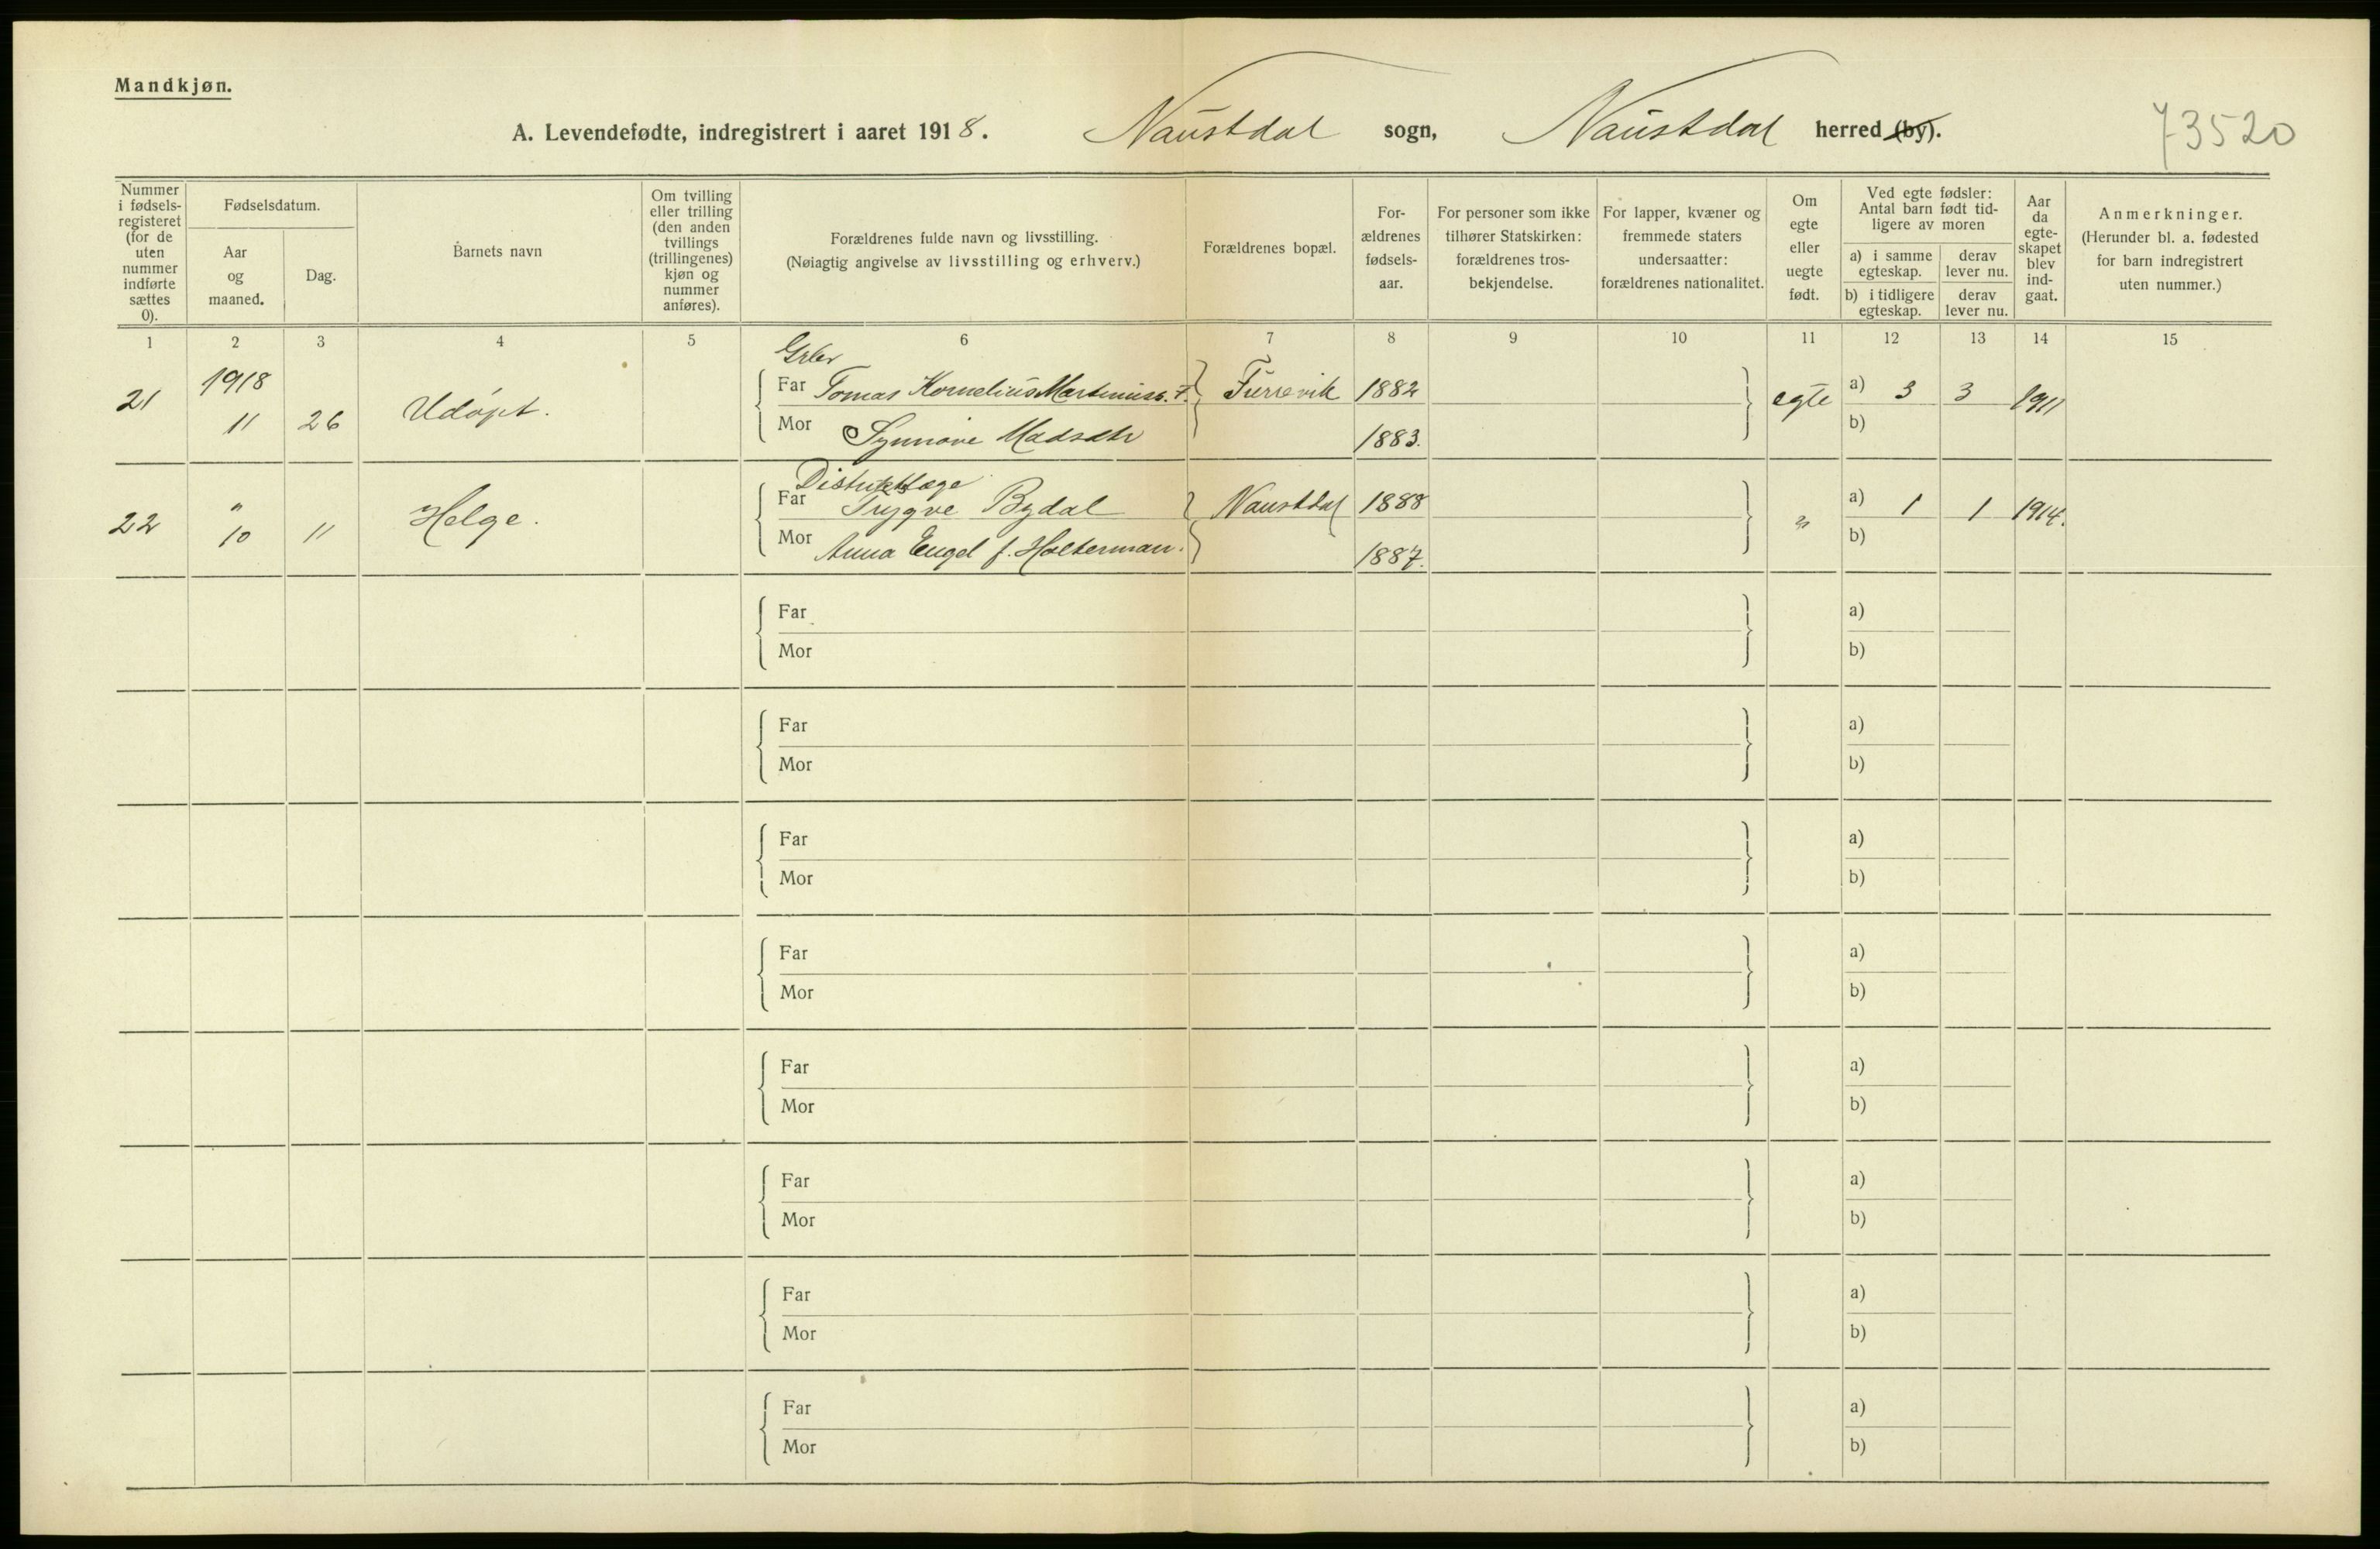 Mandkjøn.
A. Levendefødte, indregistrert i aaret 1918. Naustdal sogn, Naustdal herred (by). 73520
Nummer i fødsels-registeret (for de uten nummer indførte sættes 0).
Fødselsdatum.
Aar og maaned.
Dag.
Barnets navn
Om tvilling eller trilling (den anden tvillings (trillingenes) kjøn og nummer anføres).
Forældrenes fulde navn og livsstilling.
(Nøiagtig angivelse av livsstilling og erhverv.)
Forældrenes bopæl.
For-ældrenes fødsels-aar.
For personer som ikke tilhører Statskirken: forældrenes tros-bekjendelse.
For lapper, kvæner og fremmede staters undersaatter: forældrenes nationalitet.
Om egte eller uegte født.
Ved egte fødsler: Antal barn født tid-ligere av moren
a) i samme egteskap.
derav lever nu.
b) i tidligere egteskap.
derav lever nu.
Aar da egte-skapet blev ind-gaat.
Anmerkninger.
(Herunder bl. a. fødested for barn indregistrert uten nummer.)
1 2 3 4 5 6 7 8 9 10 11 12 13 14 15
Grbr
21 1918 Far Tomas Kornelius Martiniuss. F. Furrevik 1882 egte a) 3 3 1911
11 26 Udøpt. Mor Synnøve Madsdtr 1883. b)
Distriktslæge
22 " Helge. Far Trygve Bydal Naustdal 1888 " a) 1 1 1914.
10 11 Mor Anna Engel f. Holterman. 1887. b)
Far a)
Mor b)
Far a)
Mor b)
Far a)
Mor b)
Far a)
Mor b)
Far a)
Mor b)
Far a)
Mor b)
Far a)
Mor b)
Far a)
Mor b)